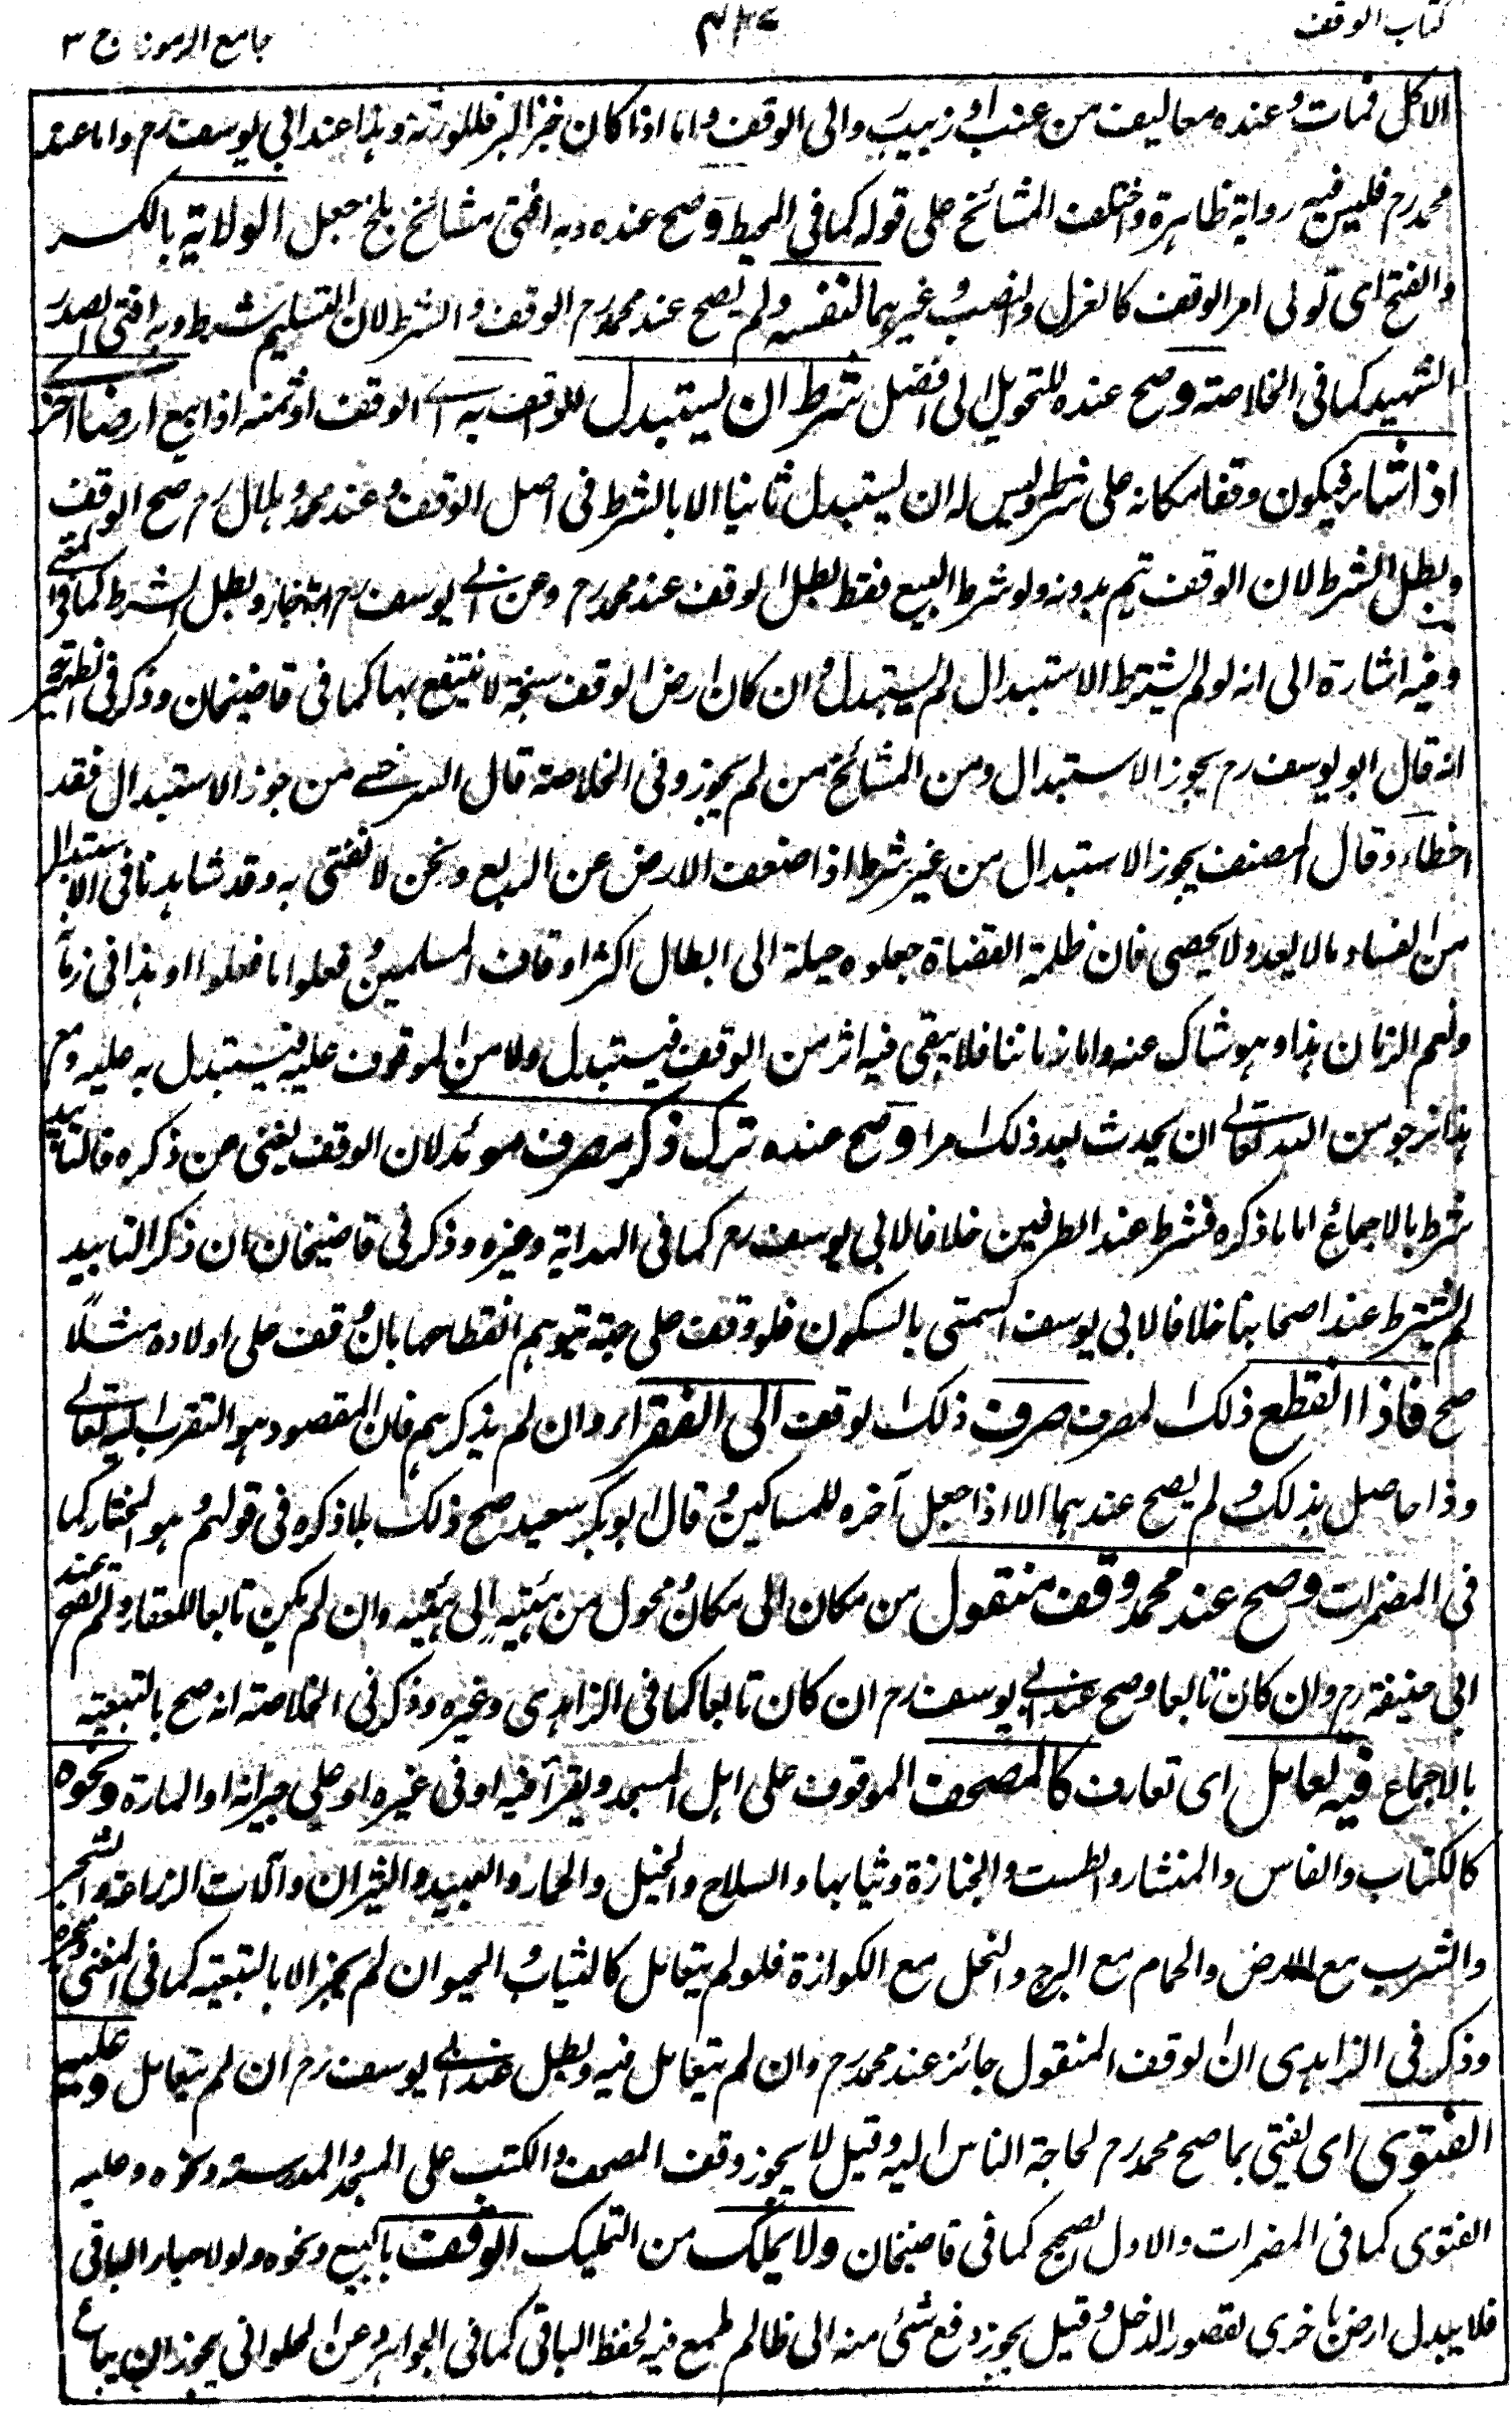 كتاب الوقف
جامع الرموز ج ٣
الاكل فمات وعنده معاليف من عنب او زبيب والى الوقف واما اذا كان خبز البر فللورثة وهذا عند ابى يوسف رح واما عند
محمد رح فليس فيه رواية ظاهرة واختلف المشائخ على قوله كما فى المحيط وصح عنده وبه افتى مشائخ بلخ جعل الولاية بالكسر
والفتح اى تولى امر الوقف كالعزل والنصب وغيرهما لنفسه ولم يصح عند محمد رح الوقف والشرط لان التسليم شرط وبه افتى الصدر
الشهيد كما فى الخلاصة وصح عنده للتحويل الى افضل شرط ان يستبدل للواقف به اى الوقف او ثمنه اذا بيع ارضا اخر
اذا شاء فيكون وقفا مكانه على شرطه وليس له ان يستبدل ثانيا الا بالشرط فى اصل الوقف وعند محمد وهلال رح صح الوقف
وبطل الشرط لان الوقف تيم بدونه ولو شرط البيع فقط بطل الوقف عند محمد رح وعن ابى يوسف رح انه جاز وبطل الشرط كما فى
وفيه اشارة الى انه لو لم يشترط الاستبدال لم يستبدل وان كان ارض الوقف سبخة لا ينتفع بها كما فى قاضيخان وذكر فى الظهيرية
انه قال ابو يوسف رح يجوز الاستبدال ومن المشائخ من لم يجوز وفى الخلاصة قال السرخسى من جوز الاستبدال فقد
اخطاء وقال المصنف يجوز الاستبدال من غير شرط اذا ضعف الارض عن الريع ونحن لا نفتى به وقد شاهدنا فى الاستبدال
من الفساد مالا يعد ولا يحصى فان ظلمة القضاة جعلوه حيلة الى ابطال اكثر اوقاف المسلمين وفعلوا ما فعلوا او هذا فى زمانه
ونعم الزمان هذا وهو شاك عنه واما زماننا فلا يبقى فيه اثر من الوقف فيستبدل ولا من الموقوف عليه فيستبدل به عليه ومع
هذا نرجو من الله تعالى ان يحدث بعد ذلك امرا وصح عنده ترك ذكر مصرف مؤبد لان الوقف يغنى عن ذكره فالتابيد
شرط بالاجماع اما ما ذكره فشرط عند الطرفين خلافا لابى يوسف رح كما فى الهداية وغيره وذكر فى قاضيخان ان ذكر التابيد
لم يشترط عند اصحابنا خلافا لابى يوسف السمتى بالسكون فلو وقف على جهة يتوهم انقطاعها بان وقف على اولاده مثلا
صح فاذا انقطع ذلك المصرف صرف ذلك الوقف الى الفقراء وان لم يذكرهم فان المقصود هو التقرب اليه تعالى
وذا حاصل بذلك ولم يصح عندهما الا اذا جعل آخره للمساكين وقال ابو بكر سعيد صح ذلك بلا ذكره فى قولهم وهو المختار كما
فى المضمرات وصح عند محمد وقف منقول من مكان الى مكان ومحول من هيئته الى هيئته وان لم يكن تابعا للعقار ولم يصح عند
ابى حنيفة رح وان كان تابعا وصح عند ابى يوسف رح ان كان تابعا كما فى الزاهدى وغيره وذكر فى الخلاصة انه صح بالتبعية
بالاجماع فيه تعامل اى تعارف كالمصحف الموقوف على اهل المسجد ويقرأ فيه او فى غيره او على جيرانه او المارة ونحوه
كالكتاب والفاس والمنشار والطست والجنازة وثيابها والسلاح والخيل والحمار والعبيد والثيران وآلات الزراعة والشجر
والشرب مع الارض والحمام مع البرج والنحل مع الكوازة فلو لم يتعامل كالثياب والحيوان لم يجز الا بالتبعية كما فى المغنى وغيره
وذكر فى الزاهدى ان الوقف المنقول جائز عند محمد رح وان لم يتعامل فيه وبطل عند ابى يوسف رح ان لم يتعامل وعليه
الفتوى اى يفتى بما صح محمد رح لحاجة الناس اليه وقيل لا يجوز وقف المصحف والكتب على المسجد والمدرسة ونحوه وعليه
الفتوى كما فى المضمرات والاول الصحيح كما فى قاضيخان ولا يملك من التمليك الوقف بالبيع ونحوه ولو لاحياء الباقى
فلا يبدل ارض باخرى لقصور الدخل وقيل يجوز دفع شئ منه الى ظالم طمع فيه لحفظ الباقى كما فى الجواهر وعن الحلوانى يجوز ان يباع